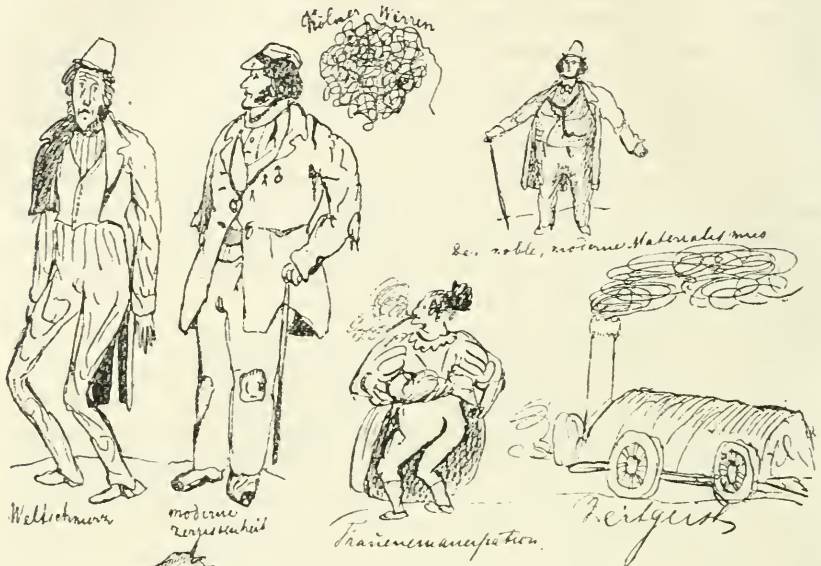 Kölner Wirren
Der noble, moderne Materialismus
Weltschmerz
moderne
Zerrissenheit
Frauenemancipation.
Zeitgeist